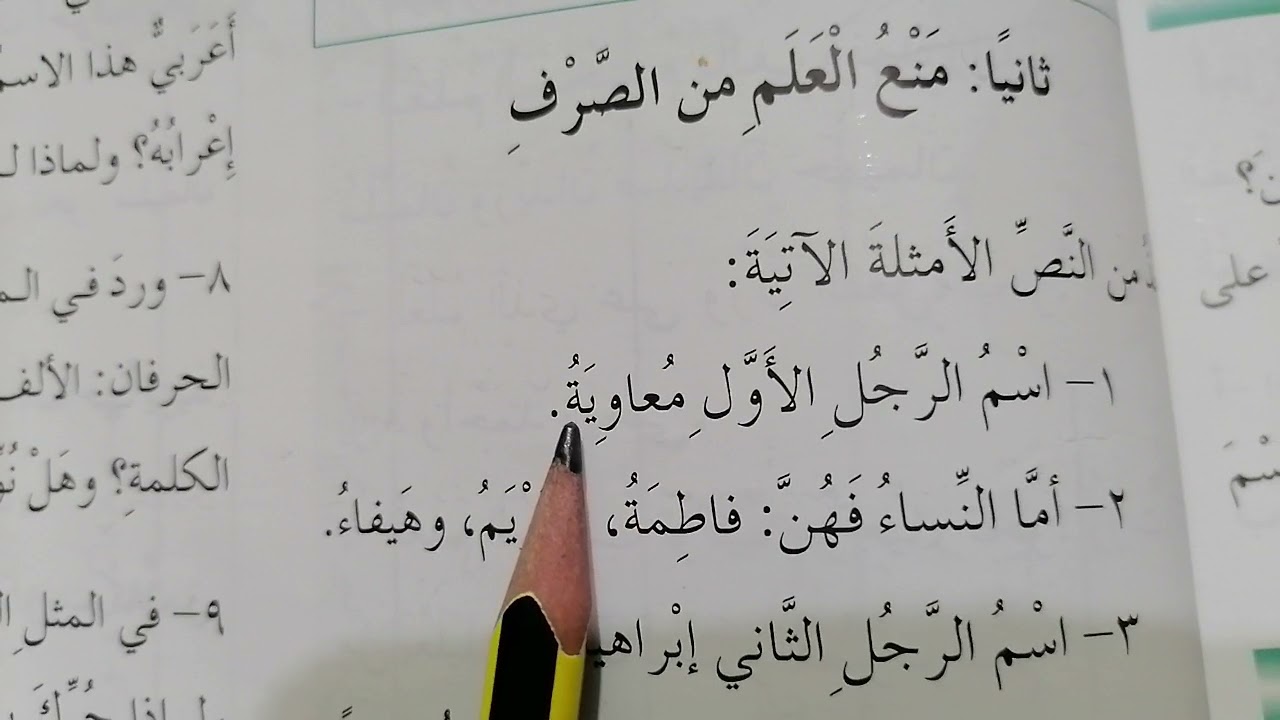 ثانيًا: مَنْعُ الْعَلَمِ مِن الصَّرْفِ
من النَّصِّ الأَمثلةَ الآتِيَةَ:
١- اسْمُ الرَّجُلِ الأَوَّلِ مُعاوِيَةُ.
٢- أمَّا النِّساءُ فَهُنَّ: فاطِمَةُ، وهَيفاءُ.
٣- اسْمُ الرَّجُلِ الثَّاني
على
أَعَرَبيٌّ هذا
إِعْرابُهُ؟ ولماذا
٨- وردَ في
الحرفان: الألف
الكلمةِ؟ وهَلْ
٩- في المثلِ